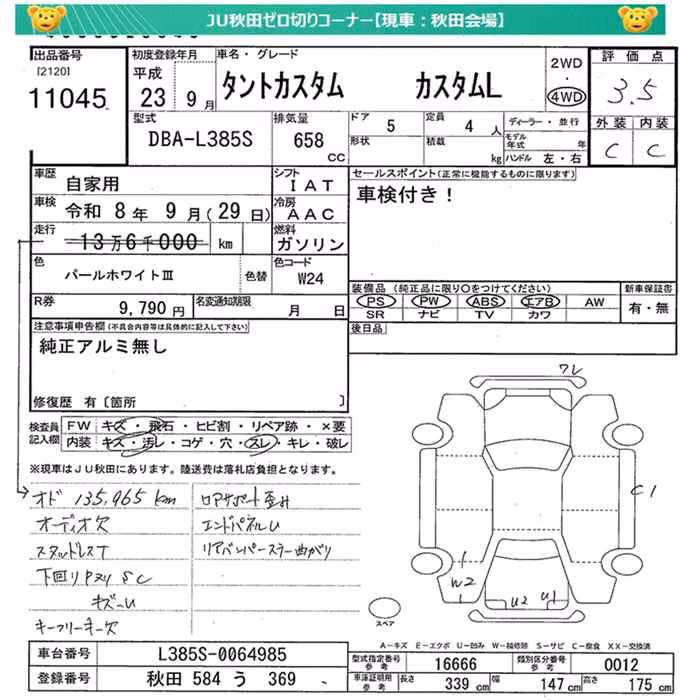 JU秋田ゼロ切りコーナー【現車：秋田会場】
出品番号
[2120]
11045
初度登録年月
平成
23 9月
車名・グレード
タントカスタム カスタムL
2WD
・
4WD
評価点
3.5
外装 内装
C C
型式
DBA-L385S
排気量
658
CC
ドア 5
定員 4 人
形状
積載 kg
ディーラー・並行
モデル年式 年
ハンドル 左・右
車歴 自家用
車検 令和 8年 9月(29日)
走行 13万6千000 km
シフト
IAT
冷房
AAC
燃料
ガソリン
セールスポイント(正常に機能するものに限ります)
車検付き！
色
パールホワイトⅢ
色替
色コード
W24
R券
9,790円
名変通知期限
月 日
装備品 (純正品に限り〇をつけてください)
PS PW ABS エアB AW
SR ナビ TV カワ
新車保証書
有・無
注意事項申告欄(不具合内容等は具体的に記入して下さい)
純正アルミ無し
後日品
修復歴 有〔箇所 〕
検査員記入欄
FW キズ・飛石・ヒビ割・リペア跡・×要
内装 キズ・汚レ・コゲ・穴・スレ・キレ・破レ
※現車はJU秋田にあります。陸送費は落札店負担となります。
オド 135,965 km
オーディオ欠
スタッドレスT
下回り
SC
キーフリーキー欠
コアサポート歪み
エンドパネルU
リアバンパーステー曲がり
ワレ
C1
W2
U2
U1
スペア
A-キズ E-エクボ U-凹み W-補修跡 S-サビ C-腐食 XX-交換済
車台番号 L385S-0064985
登録番号 秋田 584 う 369
型式指定番号 参考 16666
類別区分番号 参考 0012
車庫証明用 参考
長さ 339 cm
幅 147 cm
高さ 175 cm